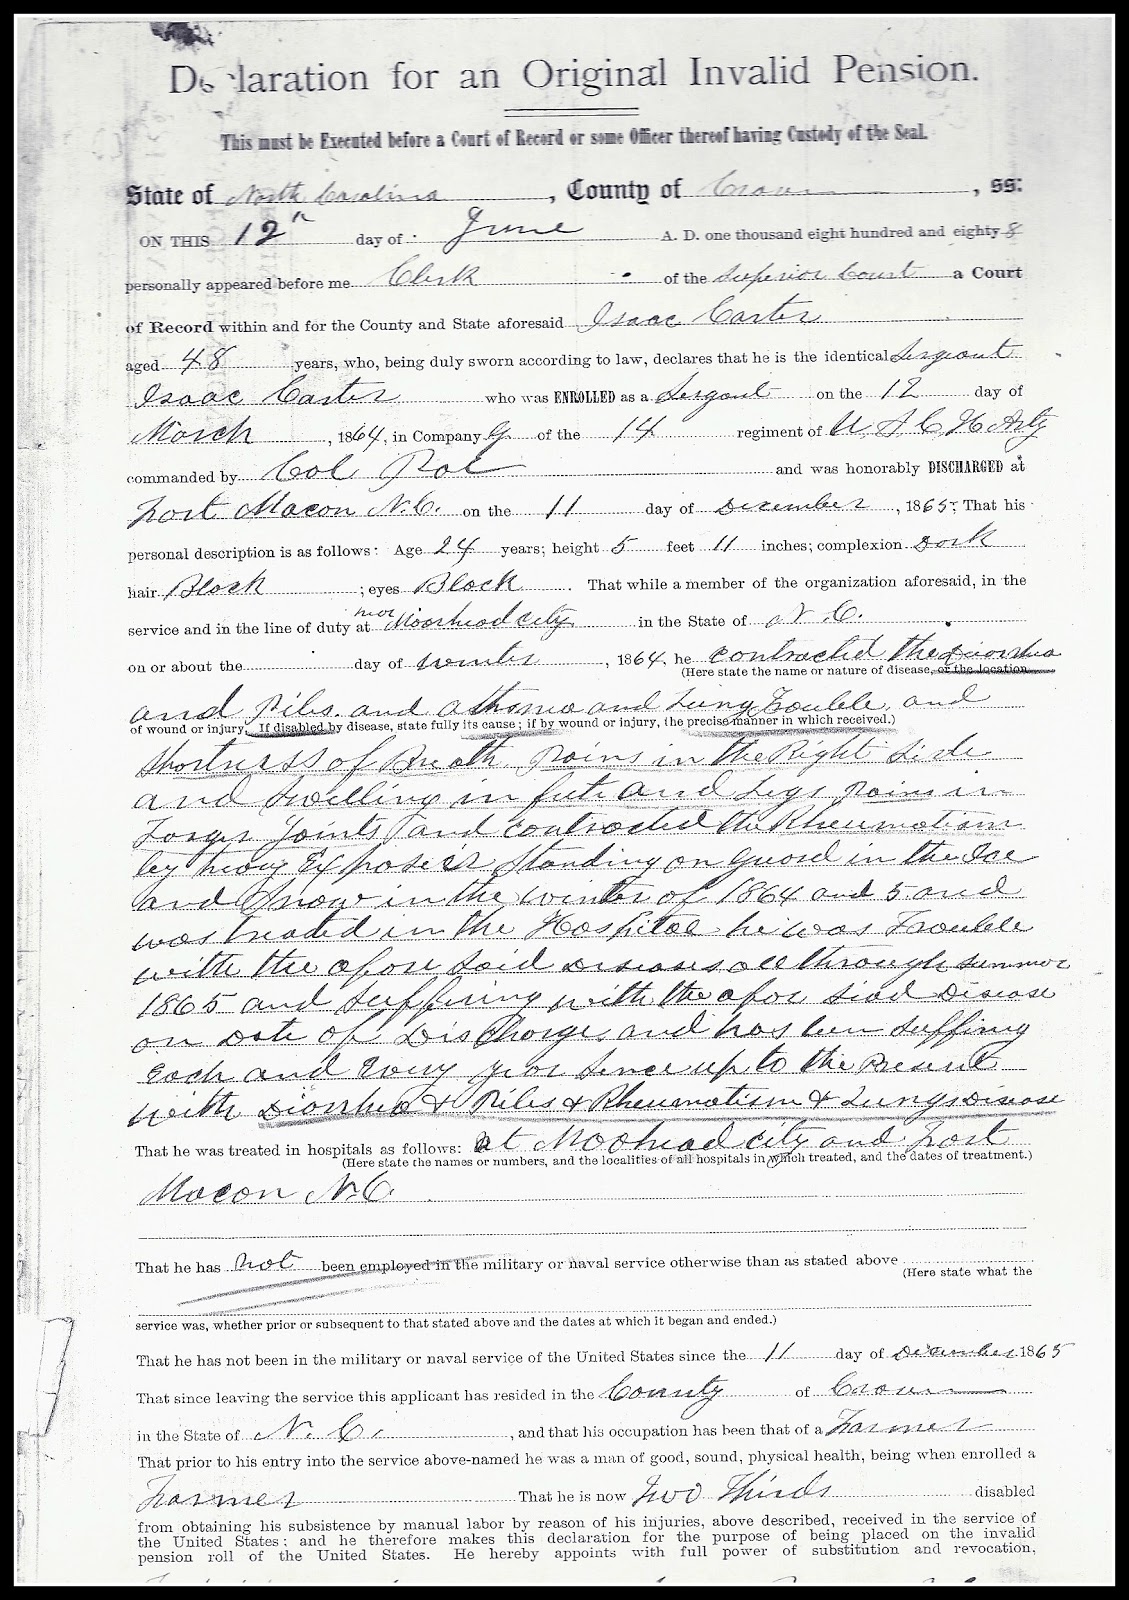 Declaration for an Original Invalid Pension.
This must be Executed before a Court of Record or some Officer thereof having Custody of the Seal.
State of North Carolina, County of Craven, ss:
ON THIS 12" day of June A. D. one thousand eight hundred and eighty-8
personally appeared before me Clerk of the Superior Court a Court
of Record within and for the County and State aforesaid Isaac Carter
aged 48 years, who, being duly sworn according to law, declares that he is the identical Sergeant
Isaac Carter who was ENROLLED as a Sergant on the 12 day of
March, 1864, in Company G of the 14 regiment of U S C H Arty
commanded by Col and was honorably DISCHARGED at
Fort Macon N.C. on the 11 day of December, 1865; That his
personal description is as follows: Age 24 years; height 5 feet 11 inches; complexion Dark
hair Black; eyes Black. That while a member of the organization aforesaid, in the
service and in the line of duty at near Moorhead city in the State of N. C.
on or about the day of winter, 1864, he contracted the Diorrhea
(Here state the name or nature of disease, or the location
and Piles. and athsma and Lung Trouble, and
of wound or injury. If disabled by disease, state fully its cause; if by wound or injury, the precise manner in which received.)
Shortness of Breath. Pains in the Right Side
and Swelling in feet and Legs Pains in
Joints and contracted the Rheumatism
by Standing on guard in the Ice
and Snow in the winter of 1864 and 5. and
was treated in the Hospital he was Trouble
with the afore Said Diseases all through summer
1865 and Suffiring with the afor Siad Disease
on Date of Discharge. and has ben Suffing
Each and Every year Sence up to the Present
with Diorrhea & Piles & Rheumatism & Lungs Disease
That he was treated in hospitals as follows: at Moohead city and Fort
(Here state the names or numbers, and the localities of all hospitals in which treated, and the dates of treatment.)
Macon N.C.
That he has not been employed in the military or naval service otherwise than as stated above
(Here state what the
service was, whether prior or subsequent to that stated above and the dates at which it began and ended.)
That he has not been in the military or naval service of the United States since the 11 day of December 1865
That since leaving the service this applicant has resided in the County of Craven
in the State of N. C., and that his occupation has been that of a Farmer
That prior to his entry into the service above-named he was a man of good, sound, physical health, being when enrolled a
Farmer That he is now Two Thirds disabled
from obtaining his subsistence by manual labor by reason of his injuries, above described, received in the service of
the United States; and he therefore makes this declaration for the purpose of being placed on the invalid
pension roll of the United States. He hereby appoints with full power of substitution and revocation,